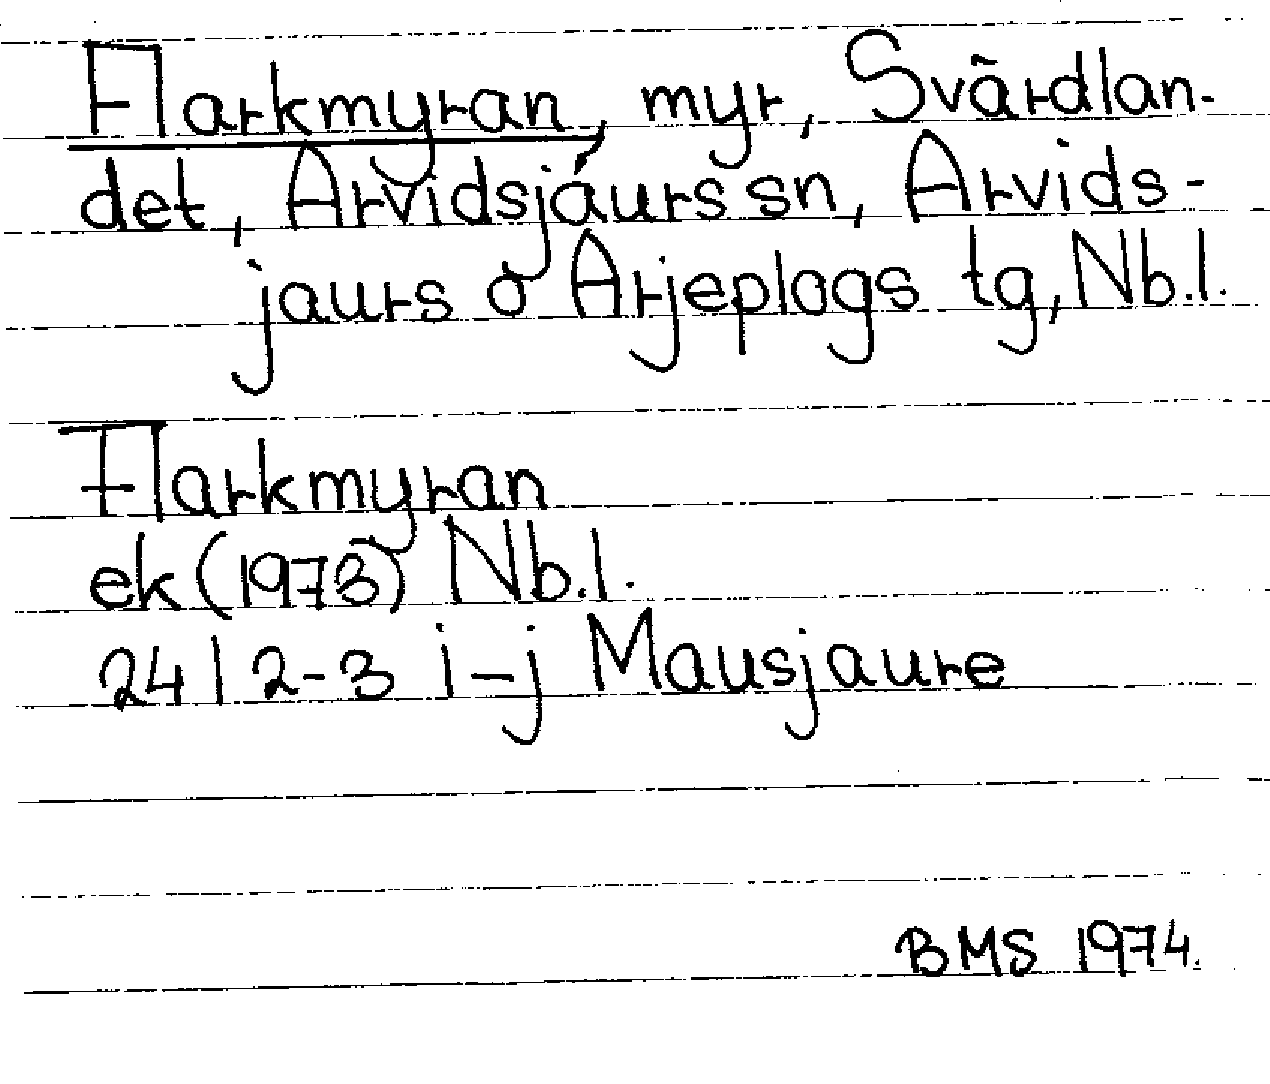 Flarkmyran, myr, Svärdlan-
det, Arvidsjaurs sn, Arvids-
jaurs o Arjeplogs tg, Nb.l.
Flarkmyran
ek (1973) Nb.l.
24 I 2-3 i-j Mausjaure
BMS 1974.